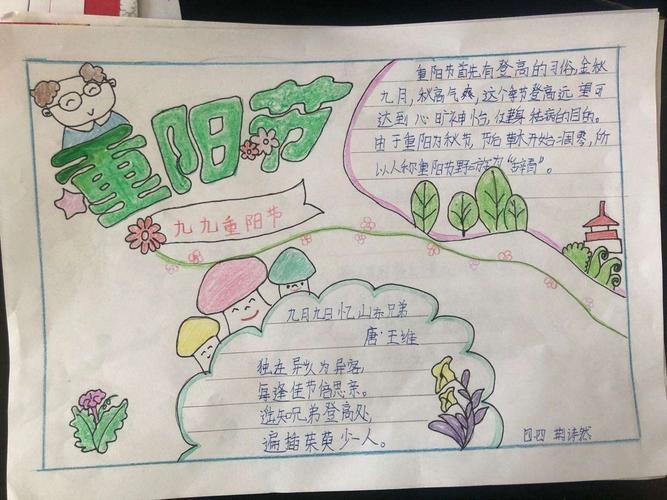 重阳节
九九重阳节
重阳节首先有登高的习俗,金秋
九月,秋高气爽,这个季节登高远望可
达到心旷神怡、健身祛病的目的。
由于重阳为秋节,节后草木开始凋零,所
以人称重阳节野游为“辞青”。
九月九日忆山东兄弟
唐·王维
独在异乡为异客,
每逢佳节倍思亲。
遥知兄弟登高处,
遍插茱萸少一人。
四四 荆诗然